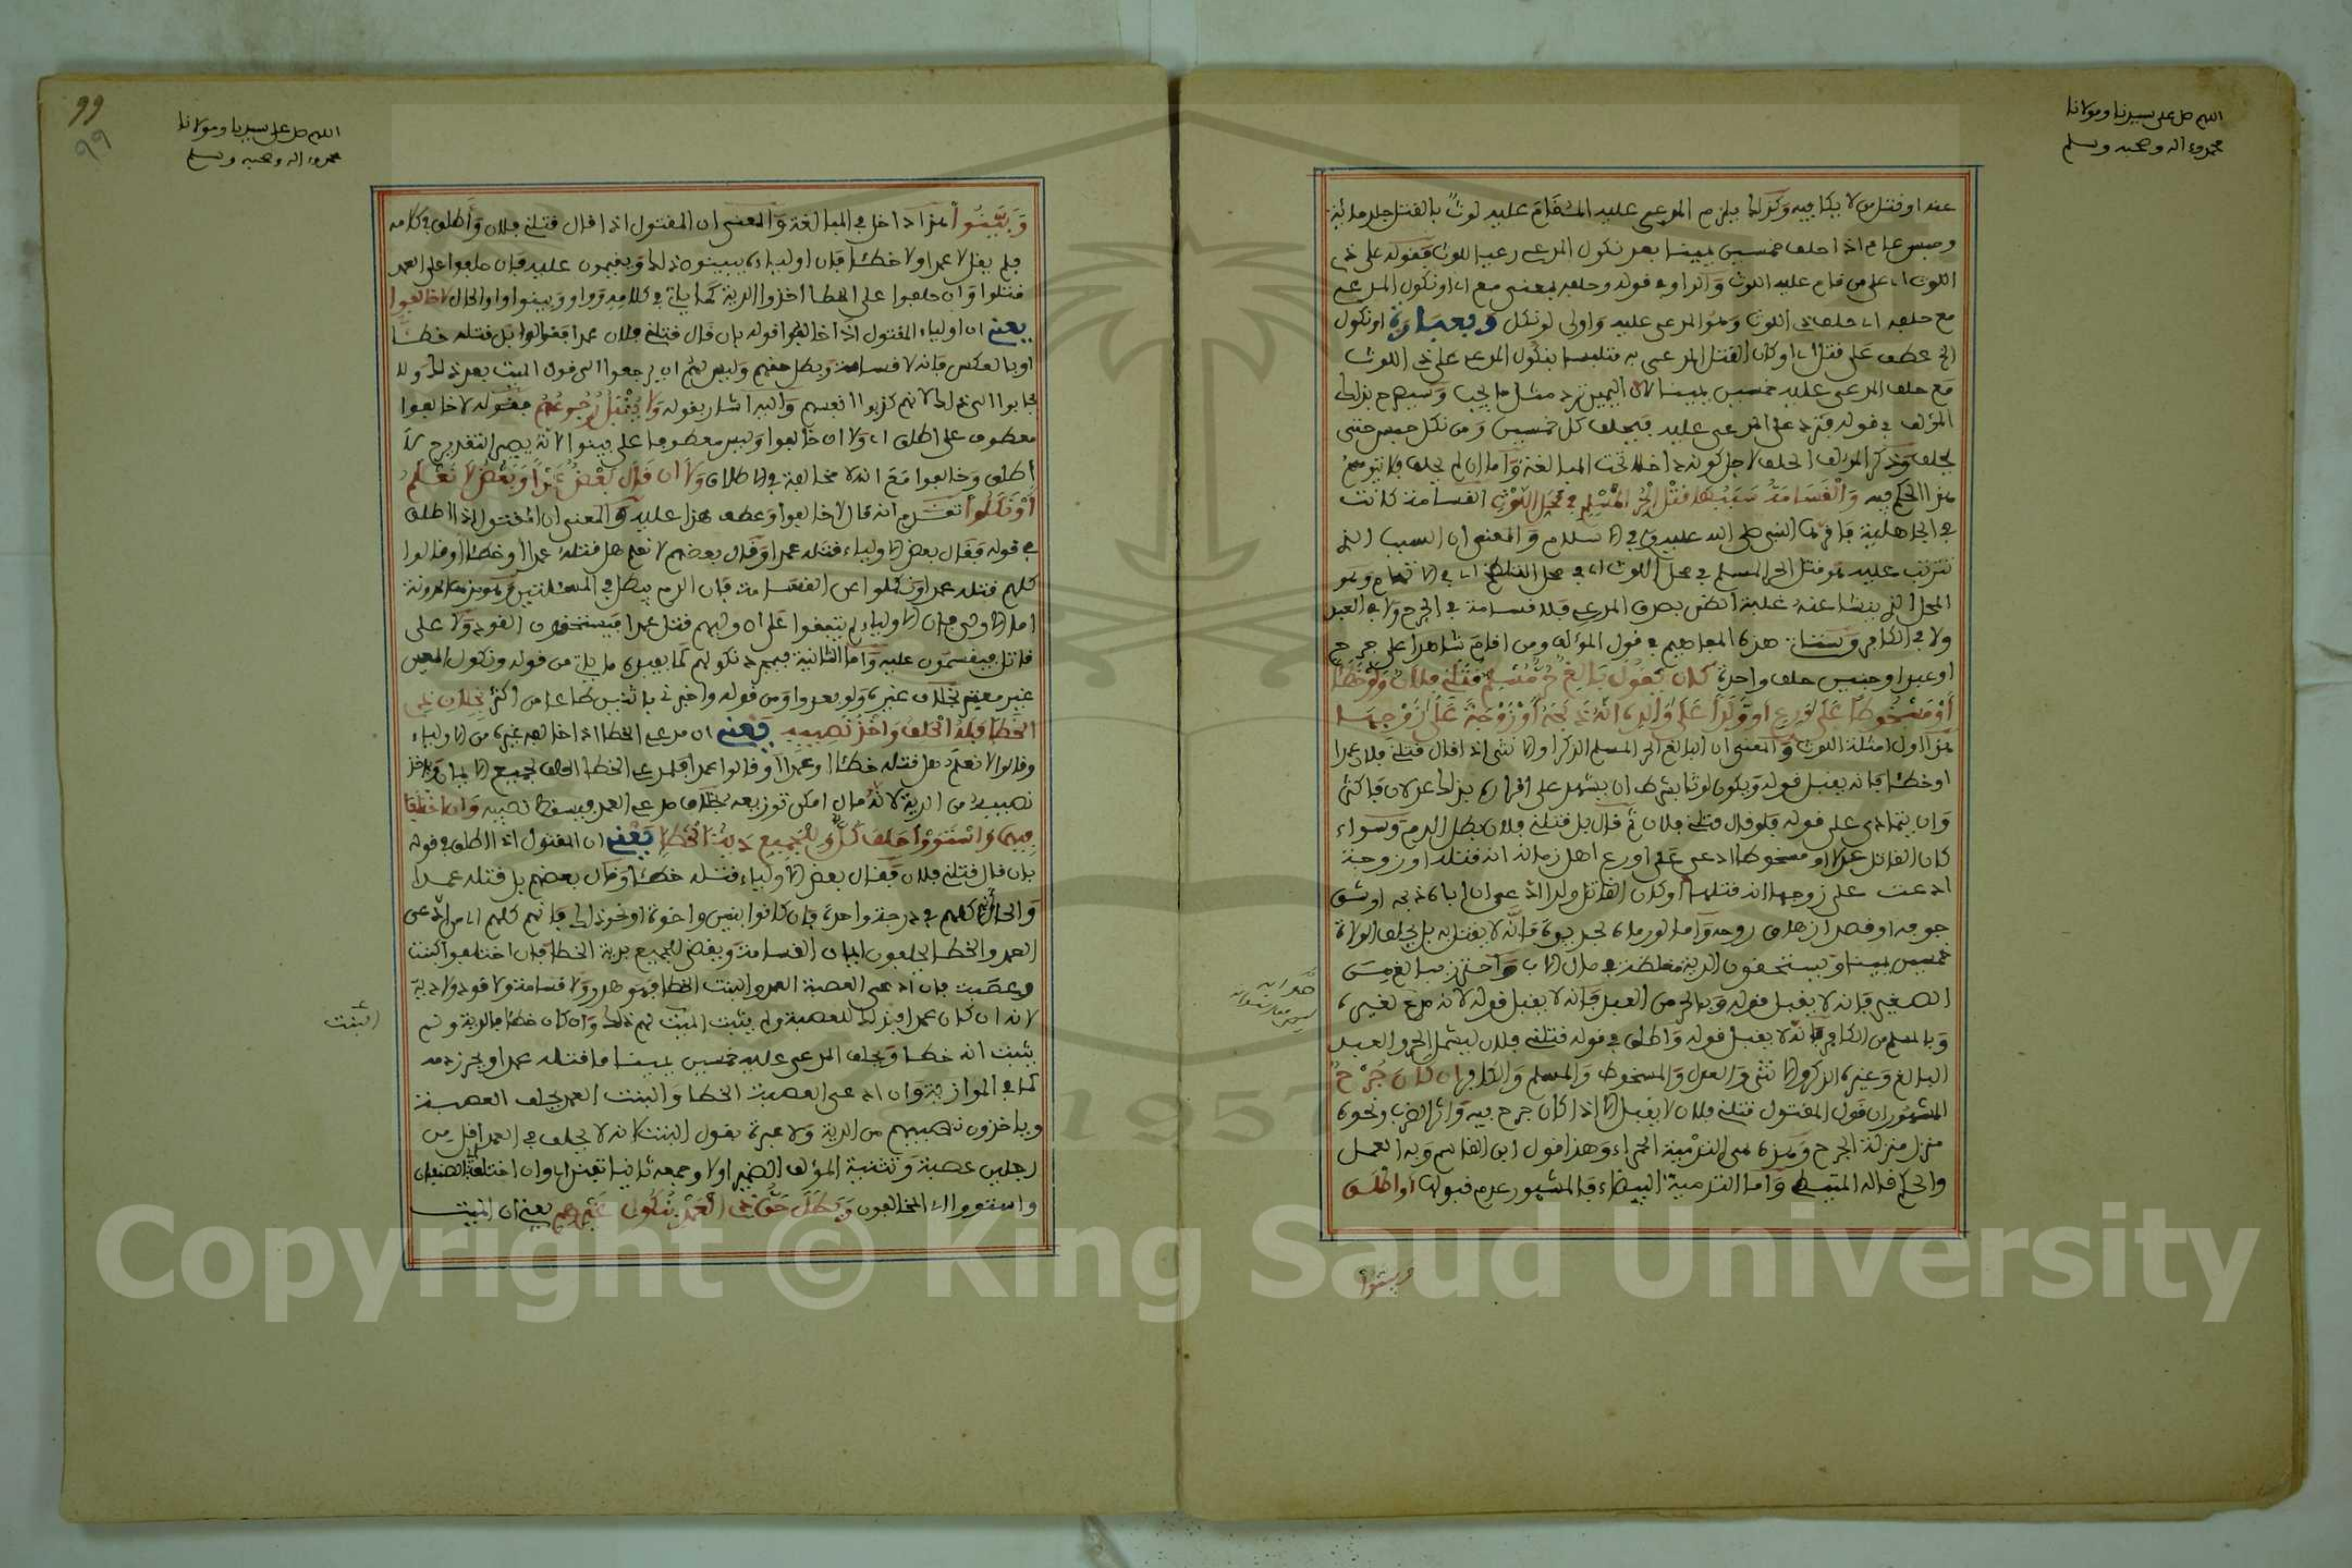 اللهم صل على سيدنا ومولانا
محمد وءاله وصحبه وسلم
عنه او قتل من لا يكافيه وكذلك يلزم المدعى عليه المقام عليه لوث بالقتل جلد مائة
وحبس عام اذا حلف خمسين يمينا بعد نكول المدعي رعيا للوث فقوله على ذي
اللوث اي على من قام عليه اللوث والواو في قوله وحلفه بمعنى مع اي او نكول المدعي
مع حلفه اي حلف ذي اللوث وهو المدعى عليه واولى لو نكل وبعبارة او نكول
الخ عطف على قتل اي او كان القتل المدعى به متلبسا بنكول المدعي على ذي اللوث
مع حلف المدعى عليه خمسين يمينا لان اليمين ترد مثل ما يجب وسيصرح بذلك
المؤلف في قوله فترد على المدعى عليه فيحلف كل خمسين ومن نكل حبس حتى
يحلف وذكر المؤلف الحلف لاجل كونه داخلا تحت المبالغة واما ان لم يحلف فلا يتوهم
هذا الحكم فيه والقسامة سببها قتل الحر المسلم في محل اللوث القسامة كانت
في الجاهلية فاقرها النبي صلى الله عليه وسلم في الاسلام والمعنى ان السبب الذي
تترتب عليه هو قتل الحر المسلم في محل اللوث اي في محل اللطخ اي في الاتهام وهو
المحل الذي ينشا عنه غلبة الظن بصدق المدعي فلا قسامة في الجرح ولا في العبد
ولا في الكافر وستاتي هذه المفاهيم في قول المؤلف ومن اقام شاهدا على جرح
او عبد او جنين حلف واحدة كان يقول بالغ حر مسلم قتلني فلان ولو خطأ
او مسخوطا على ورع او ولدا على والده انه ذبحه او زوجة على زوجها
هذا اول امثلة اللوث والمعنى ان البالغ الحر المسلم الذكر او الانثى اذا قال قتلني فلان عمدا
او خطئا فانه يقبل قوله ويكون لوثا بشرط ان يشهد على اقراره بذلك عدلان فاكثر
وان يتمادى على قوله فلو قال قتلني فلان ثم قال بل قتلني فلان بطل الدم وسواء
كان القاتل عدلا او مسخوطا ادعى على اورع اهل زمانه انه قتله او زوجة
ادعت على زوجها انه قتلها او كان القاتل ولدا ادعى ان اباه ذبحه او شق
جوفه او قصد ازهاق روحه واما لو رماه بحديدة فانه لا يقتل به بل يحلف الولاة
خمسين يمينا ويستحقون الدية مغلظة في مال الاب واحترز ببالغ من
الصغير فانه لا يقبل قوله وبالحر من العبد فانه لا يقبل قوله لانه مدع لغيره
وبالمسلم من الكافر فانه لا يقبل قوله واطلق في قوله قتلني فلان ليشمل الحر والعبد
البالغ وغيره الذكر والانثى والعدل والمسخوط والمسلم والكافر ان كان جرح
المشهور ان قول المقتول قتلني فلان لا يقبل الا اذا كان جرح فيه واثر الضرب ونحوه
منزل منزلة الجرح وهذه هي التدمية الحمراء وهذا قول ابن القاسم وبه العمل
والحكم قاله المتيطي واما التدمية البيضاء فالمشهور عدم قبولها او اطلق
وبينوا
99
99
اللهم صل على سيدنا ومولانا
محمد وءاله وصحبه وسلم
وبينوا هذا داخل في المبالغة والمعنى ان المقتول اذا قال قتلني فلان واطلق في كلامه
فلم يقل لا عمدا ولا خطئا فان اولياءه يبينون ذلك ويقسمون عليه فان حلفوا على العمد
قتلوا وان حلفوا على الخطا اخذوا الدية كما ياتي في كلامه وواو وبينوا واو الحال لا خالفوا
يعني ان اولياء المقتول اذا خالفوا قوله بان قال قتلني فلان عمدا فقالوا بل قتله خطئا
او بالعكس فانه لا قسامة وبطل حقهم وليس لهم ان يرجعوا الى قول الميت بعد ذلك ولا
يجابوا الى ذلك لانهم كذبوا انفسهم واليه اشار بقوله ولا يقبل رجوعهم فقوله لا خالفوا
معطوف على اطلق اي ولا ان خالفوا وليس معطوفا على بينوا لانه يصير التقدير
اطلق وخالفوا مع انه لا مخالفة في الاطلاق ولا ان قال بعض عمدا وبعض لا نعلم
او نكلوا تقدم انه قال لا خالفوا وعطف هذا عليه والمعنى ان المقتول اذا اطلق
في قوله فقال بعض الاولياء قتله عمدا وقال بعضهم لا نعلم هل قتله عمدا او خطئا او قالوا
كلهم قتله عمدا ونكلوا عن القسامة فان الدم يبطل في المسئلتين
اما الاولى فلان الاولياء لم يتفقوا على ان وليهم قتل عمدا فيستحقون القود ولا على
قاتل فيقسمون عليه واما الثانية فبمجرد نكولهم كما يفيده ما ياتي من قوله ونكول المعين
غير معتبر بخلاف غيره ولو بعدوا ومن قوله
الخطا فله الحلف واخذ نصيبه يعني ان مدعي الخطا اذا خالفه غيره من الاولياء
وقالوا لا نعلم هل قتله خطئا او عمدا او قالوا عمدا فلمدعي الخطا الحلف لجميع الايمان وياخذ
نصيبه من الدية لانه مال امكن توزيعه بخلاف مدعي العمد فيسقط نصيبه وان اختلفا
فيهما واستووا حلف كل وللجميع دية الخطا يعني ان المقتول اذا اطلق في قوله
بان قال قتلني فلان فقال بعض الاولياء قتله خطئا وقال بعضهم بل قتله عمدا
والحال انهم كلهم في درجة واحدة بان كانوا بنين او اخوة او نحو ذلك فانهم كلهم اي من ادعى
العمد والخطا يحلفون ايمان القسامة ويقضى للجميع بدية الخطا فان اختلفوا كبنت
وعصبة فان ادعى العصبة العمد والبنت الخطا فهو هدر ولا قسامة ولا قود ولا دية
لانه ان كان عمدا فذلك للعصبة ولم يثبت الميت لهم ذلك وان كان خطئا فالدية ولم
البنت
يثبت انه خطا ويحلف المدعى عليه خمسين يمينا ما قتله عمدا ويحرز دمه
كما في الموازية وان ادعى العصبة الخطا والبنت العمد يحلف العصبة
وياخذون نصيبهم من الدية ولا عبرة بقول البنت لانه لا يحلف في العمد اقل من
رجلين عصبة وتثنية المؤلف الضمير اولا وجمعه ثانيا تفننا اي وان اختلف
واستووا اي المخالفون وبطل حق ذي العمد بنكول غيرهم يعني ان الميت
Copyright © King Saud University
1957